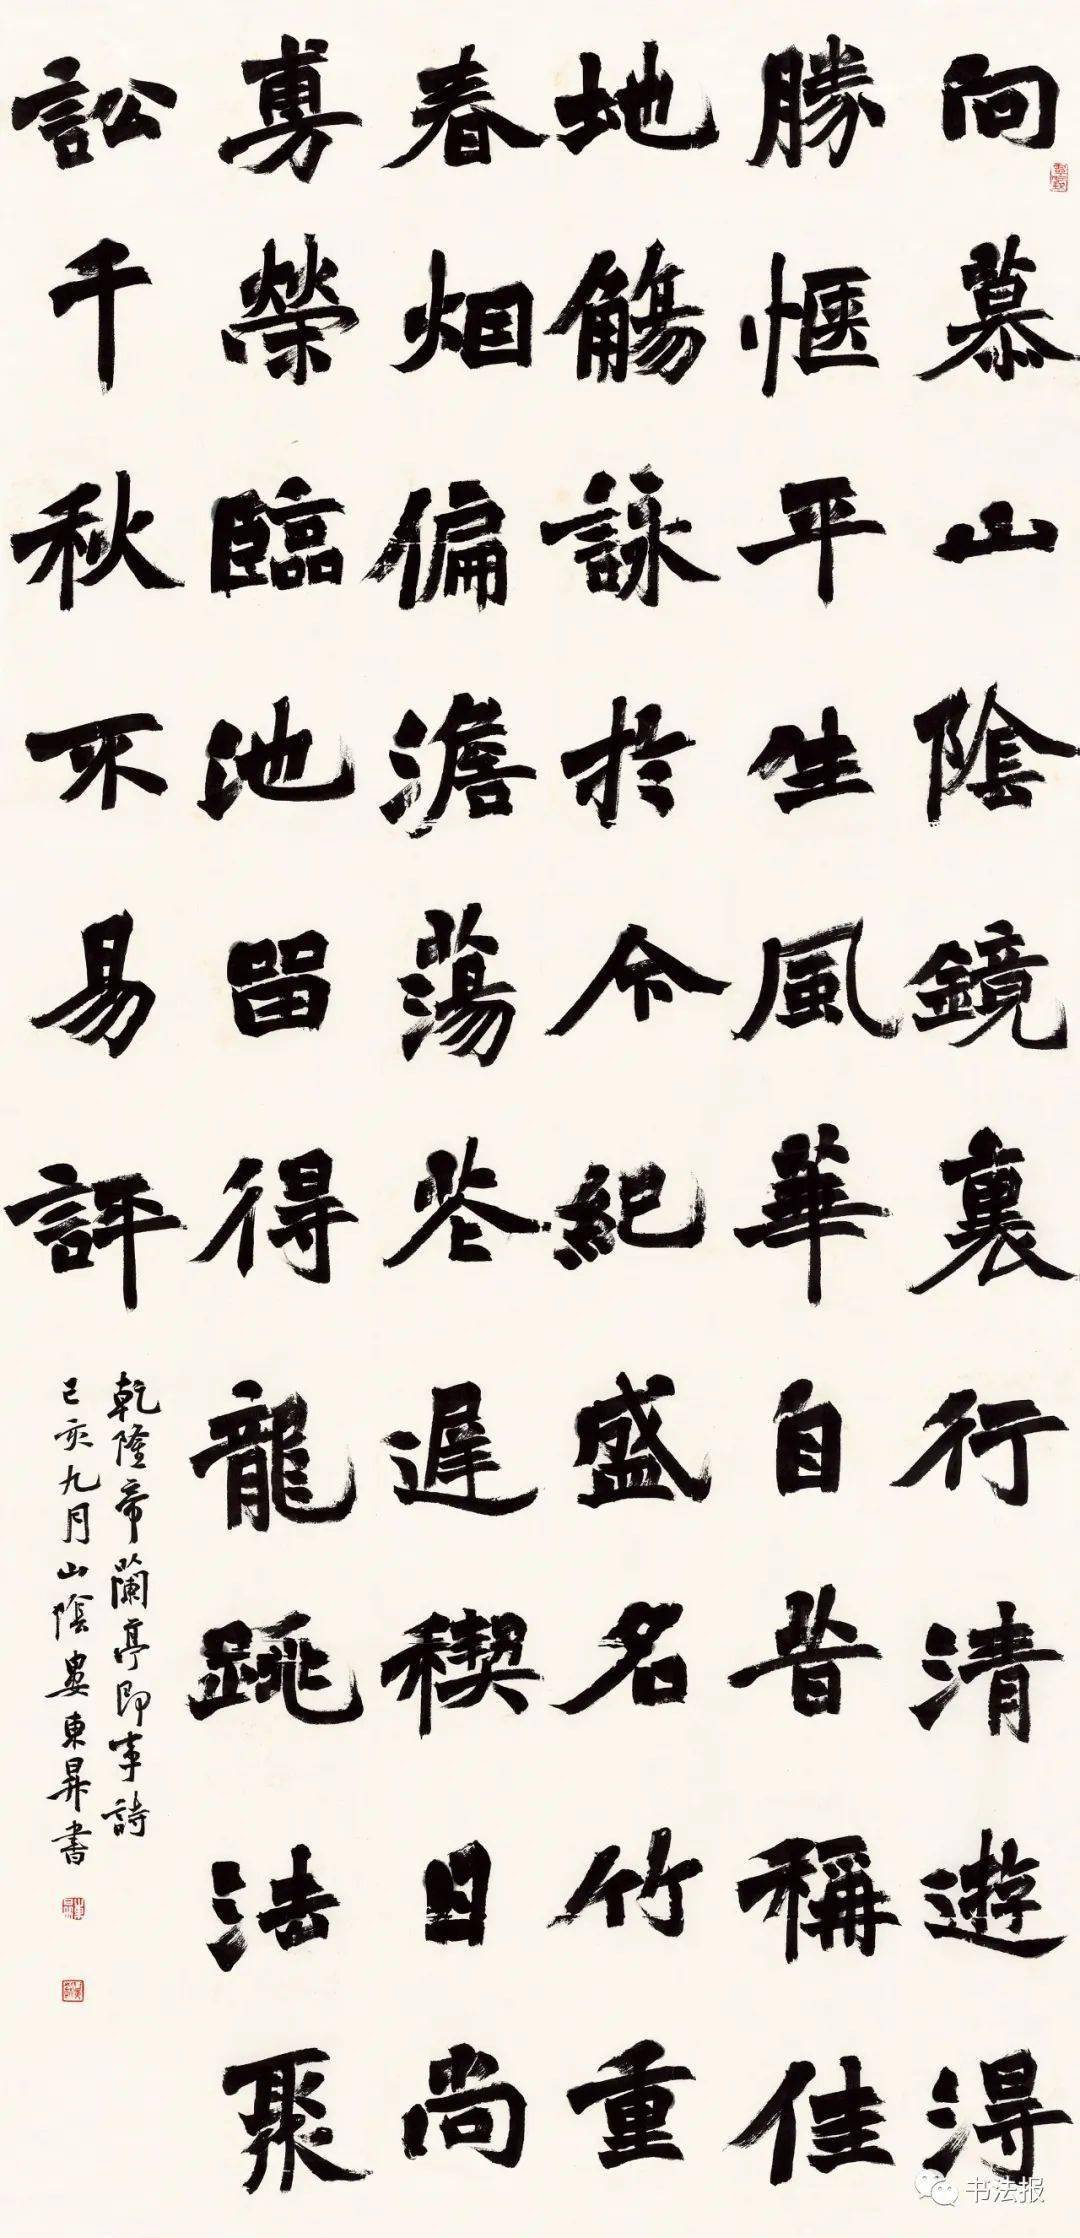 向慕山陰鏡裏行清遊得
勝愜平生風華自昔稱佳
地觴詠於今紀盛名竹重
春烟偏澹蕩花遲稧日尚
旉榮臨池留得龍跳法聚
訟千秋不易評
乾隆帝蘭亭即事詩
己亥九月山陰婁東昇書
书法报